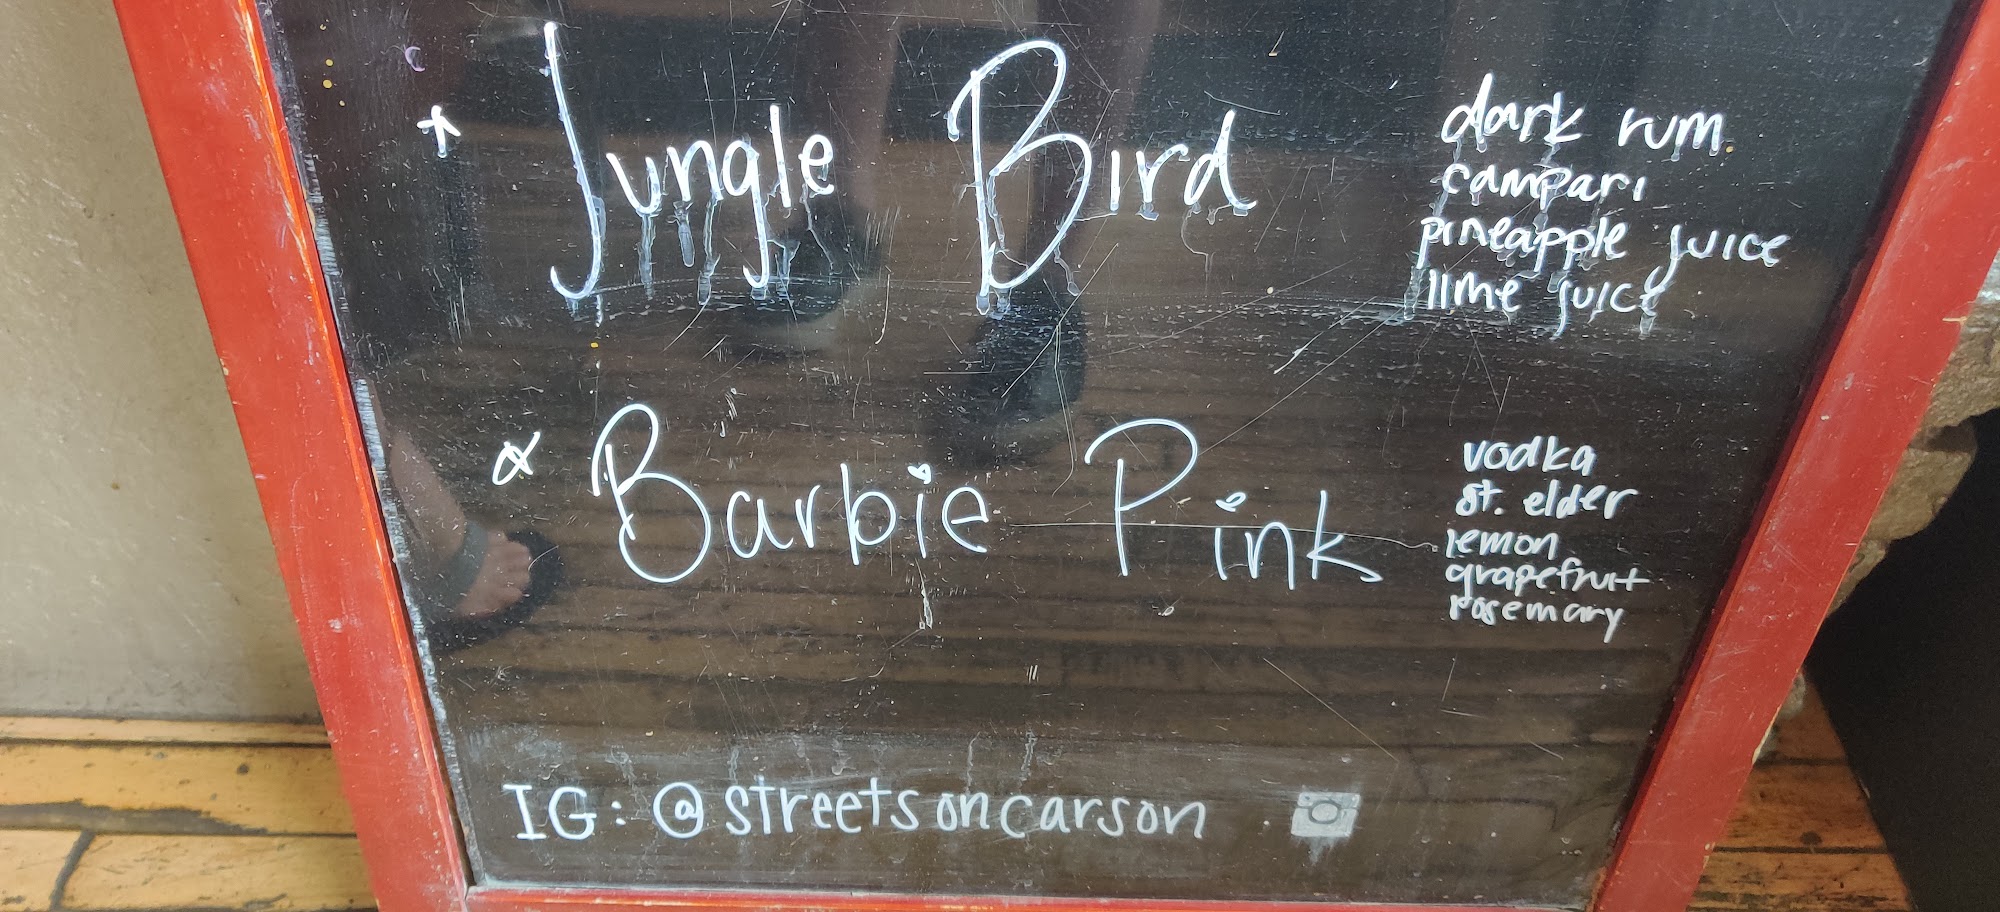 * Jungle Bird
dark rum
campari
pineapple juice
lime juice
* Barbie Pink
vodka
st. elder
lemon
grapefruit
rosemary
IG: @streetsoncarson